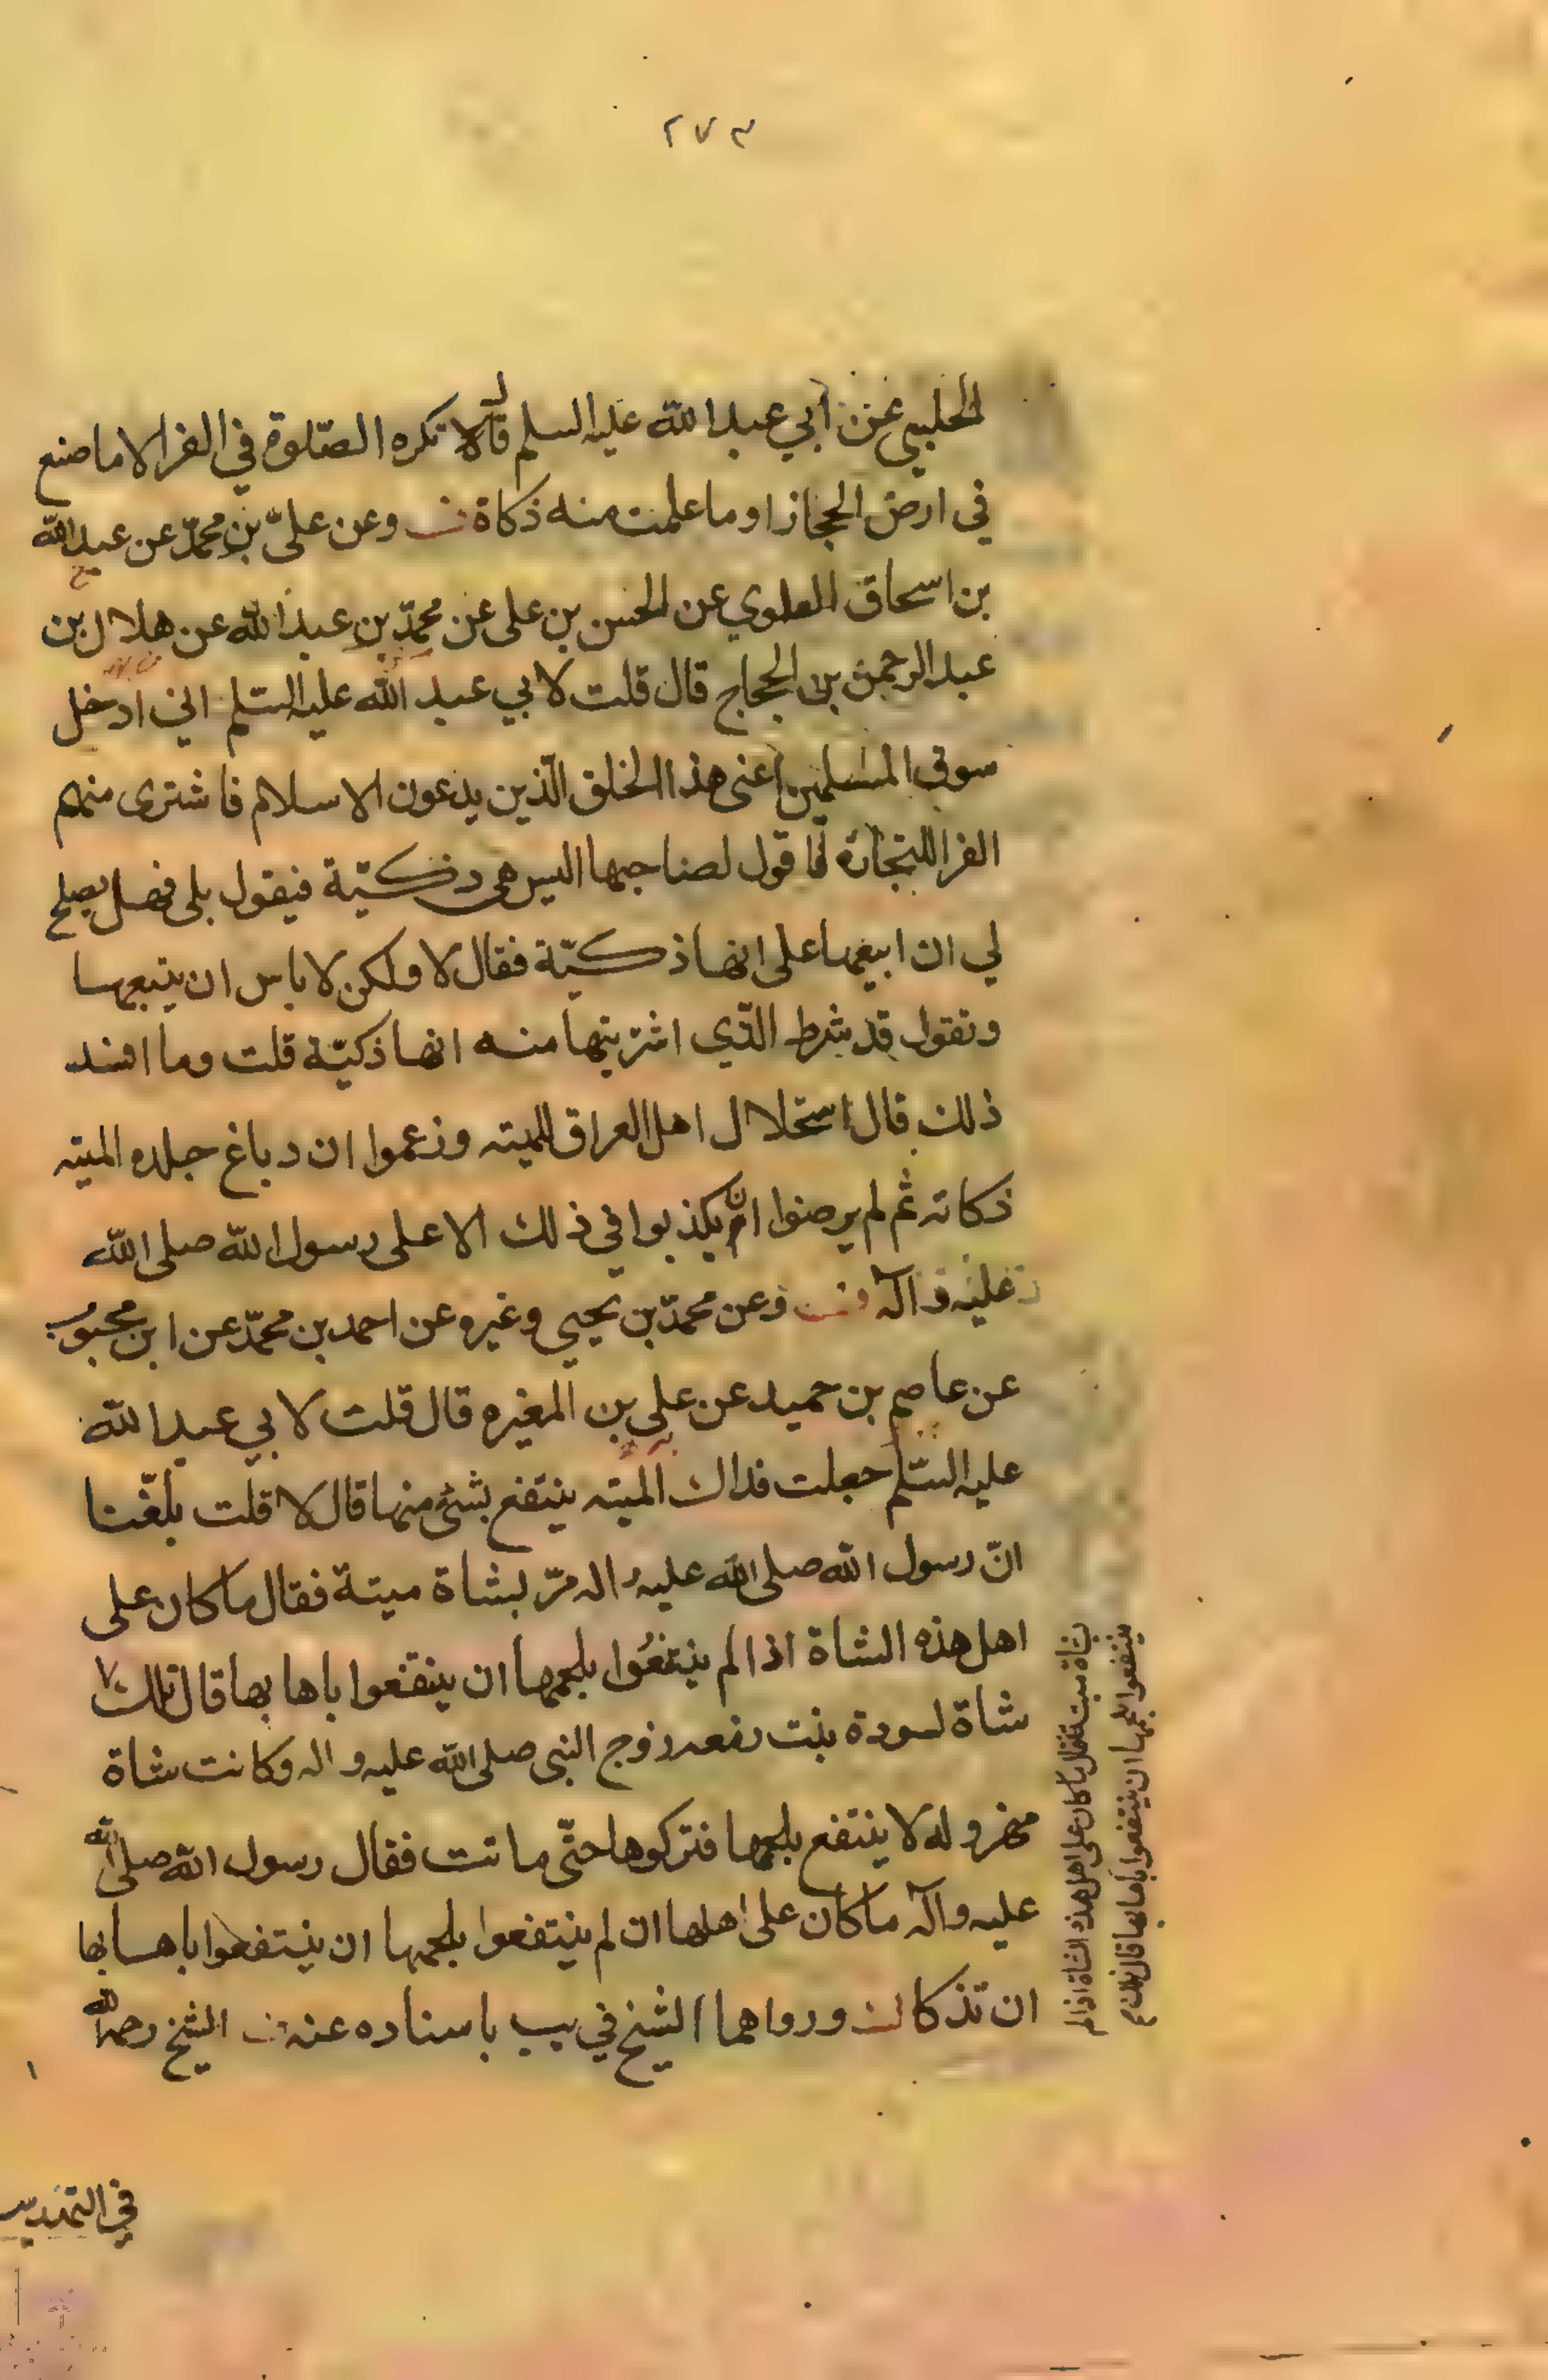 ٢٧٣
الحلبي عن أبي عبد الله عليه السلم قال لا تكره الصّلوة في الفرا الا ما صنع
في ارض الحجاز او ما علمت منه ذكاة وعن عليّ بن محمّد عن عبد الله
بن اسحاق العلوي عن الحسن بن على عن محمّد بن عبد الله عن هلال بن
عبد الرحمن بن الحجاج قال قلت لابي عبد الله عليه السّلم اني ادخل
سوق المسلمين اعنى هذا الخلق الّذين يدعون الاسلام فاشترى منهم
الفرا للتجارة فاقول لصاحبها اليس هى ذكيّة فيقول بلى فهل يصلح
لي ان ابيعها على انها ذكيّة فقال لا ولكن لا باس ان يتبعها
وتقول قد شرط الذّي اشتريتها منه انها ذكيّة قلت وما افسد
ذلك قال استحلال اهل العراق للميته وزعموا ان دباغ جلده الميته
ذكاته ثم لم يرضوا ان يكذبوا في ذلك الا على رسول الله صلى الله
عليه و آله وعن محمّد بن يحيي وغيره عن احمد بن محمّد عن ابن محبوب
عن عاصم بن حميد عن على بن المغيره قال قلت لابي عبد الله
عليه السّلم جعلت فداك الميته ينتفع بشئ منها قال لا قلت بلغنا
انّ رسول الله صلى الله عليه واله مرّ بشاة ميتة فقال ما كان على
اهل هذه الشاة اذا لم ينتفعُوا بلحمها ان ينتفعوا باهابها قال تلك
شاة لسودة بنت رمعه زوج النبى صلى الله عليه و اله وكانت شاة
مهزوله لا ينتفع بلحمها فتركوها حتّى ماتت فقال رسول الله صلى الله
عليه وآله ما كان على اهلها ان لم ينتفعوا بلحمها ان ينتفعوا باهابها
ان تذكا ورواهما الشيخ في يب باسناده عنه الشيخ رحمه الله
بشاة ميتة فقال ما كان على اهل هذه الشاة اذا لم
ينتفعوا بلحمها ان ينتفعوا باهابها قال تلك
في التهذيب